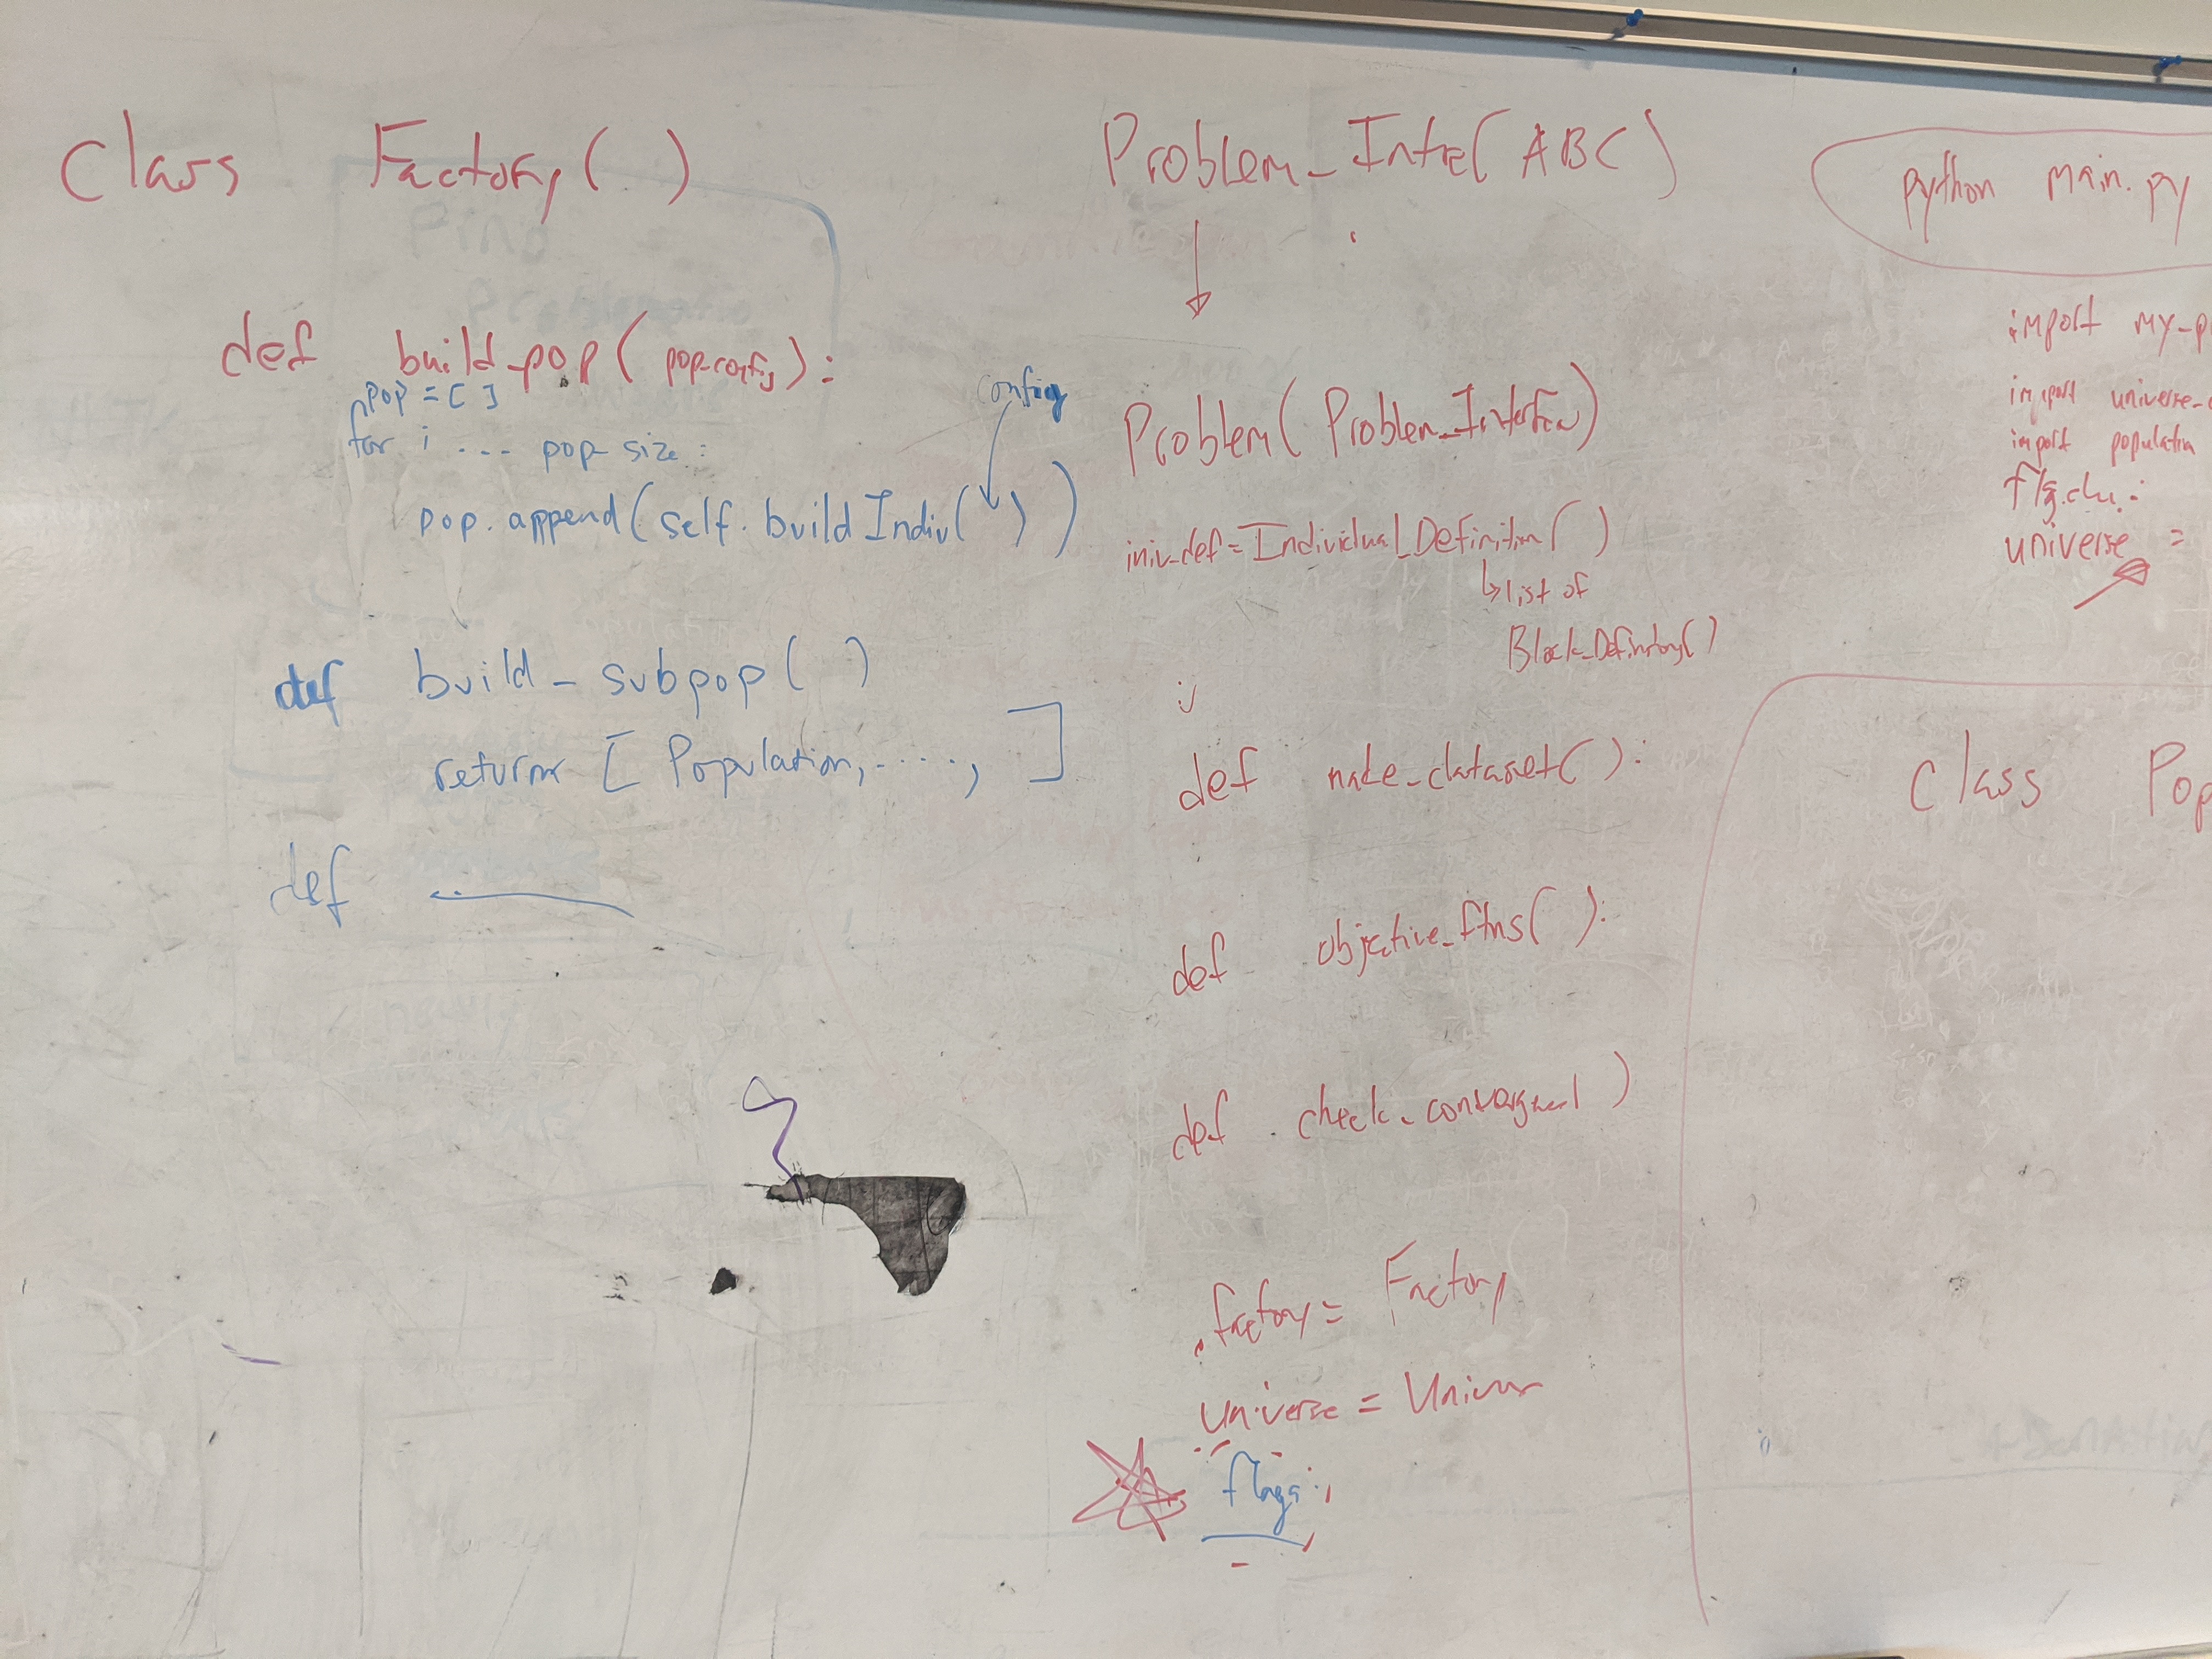 Class Factory( )
def build_pop( pop-config):
pop = [ ]
for i .... pop-size :
config
pop.append(self.buildIndiv( ))
def build_subpop( )
return [ Population, ....., ]
def
Problem_Inte(ABC)
Problem( Problem_Interface)
iniv_def = Individual_Definition( )
↳ list of
Block_Definition()
def make_dataset( ):
def objective_ftns( ):
def check_convergence( )
factory = Factory
universe = Univer
flags
python main.py
import my_p
import universe_
import population
universe =
Class Pop